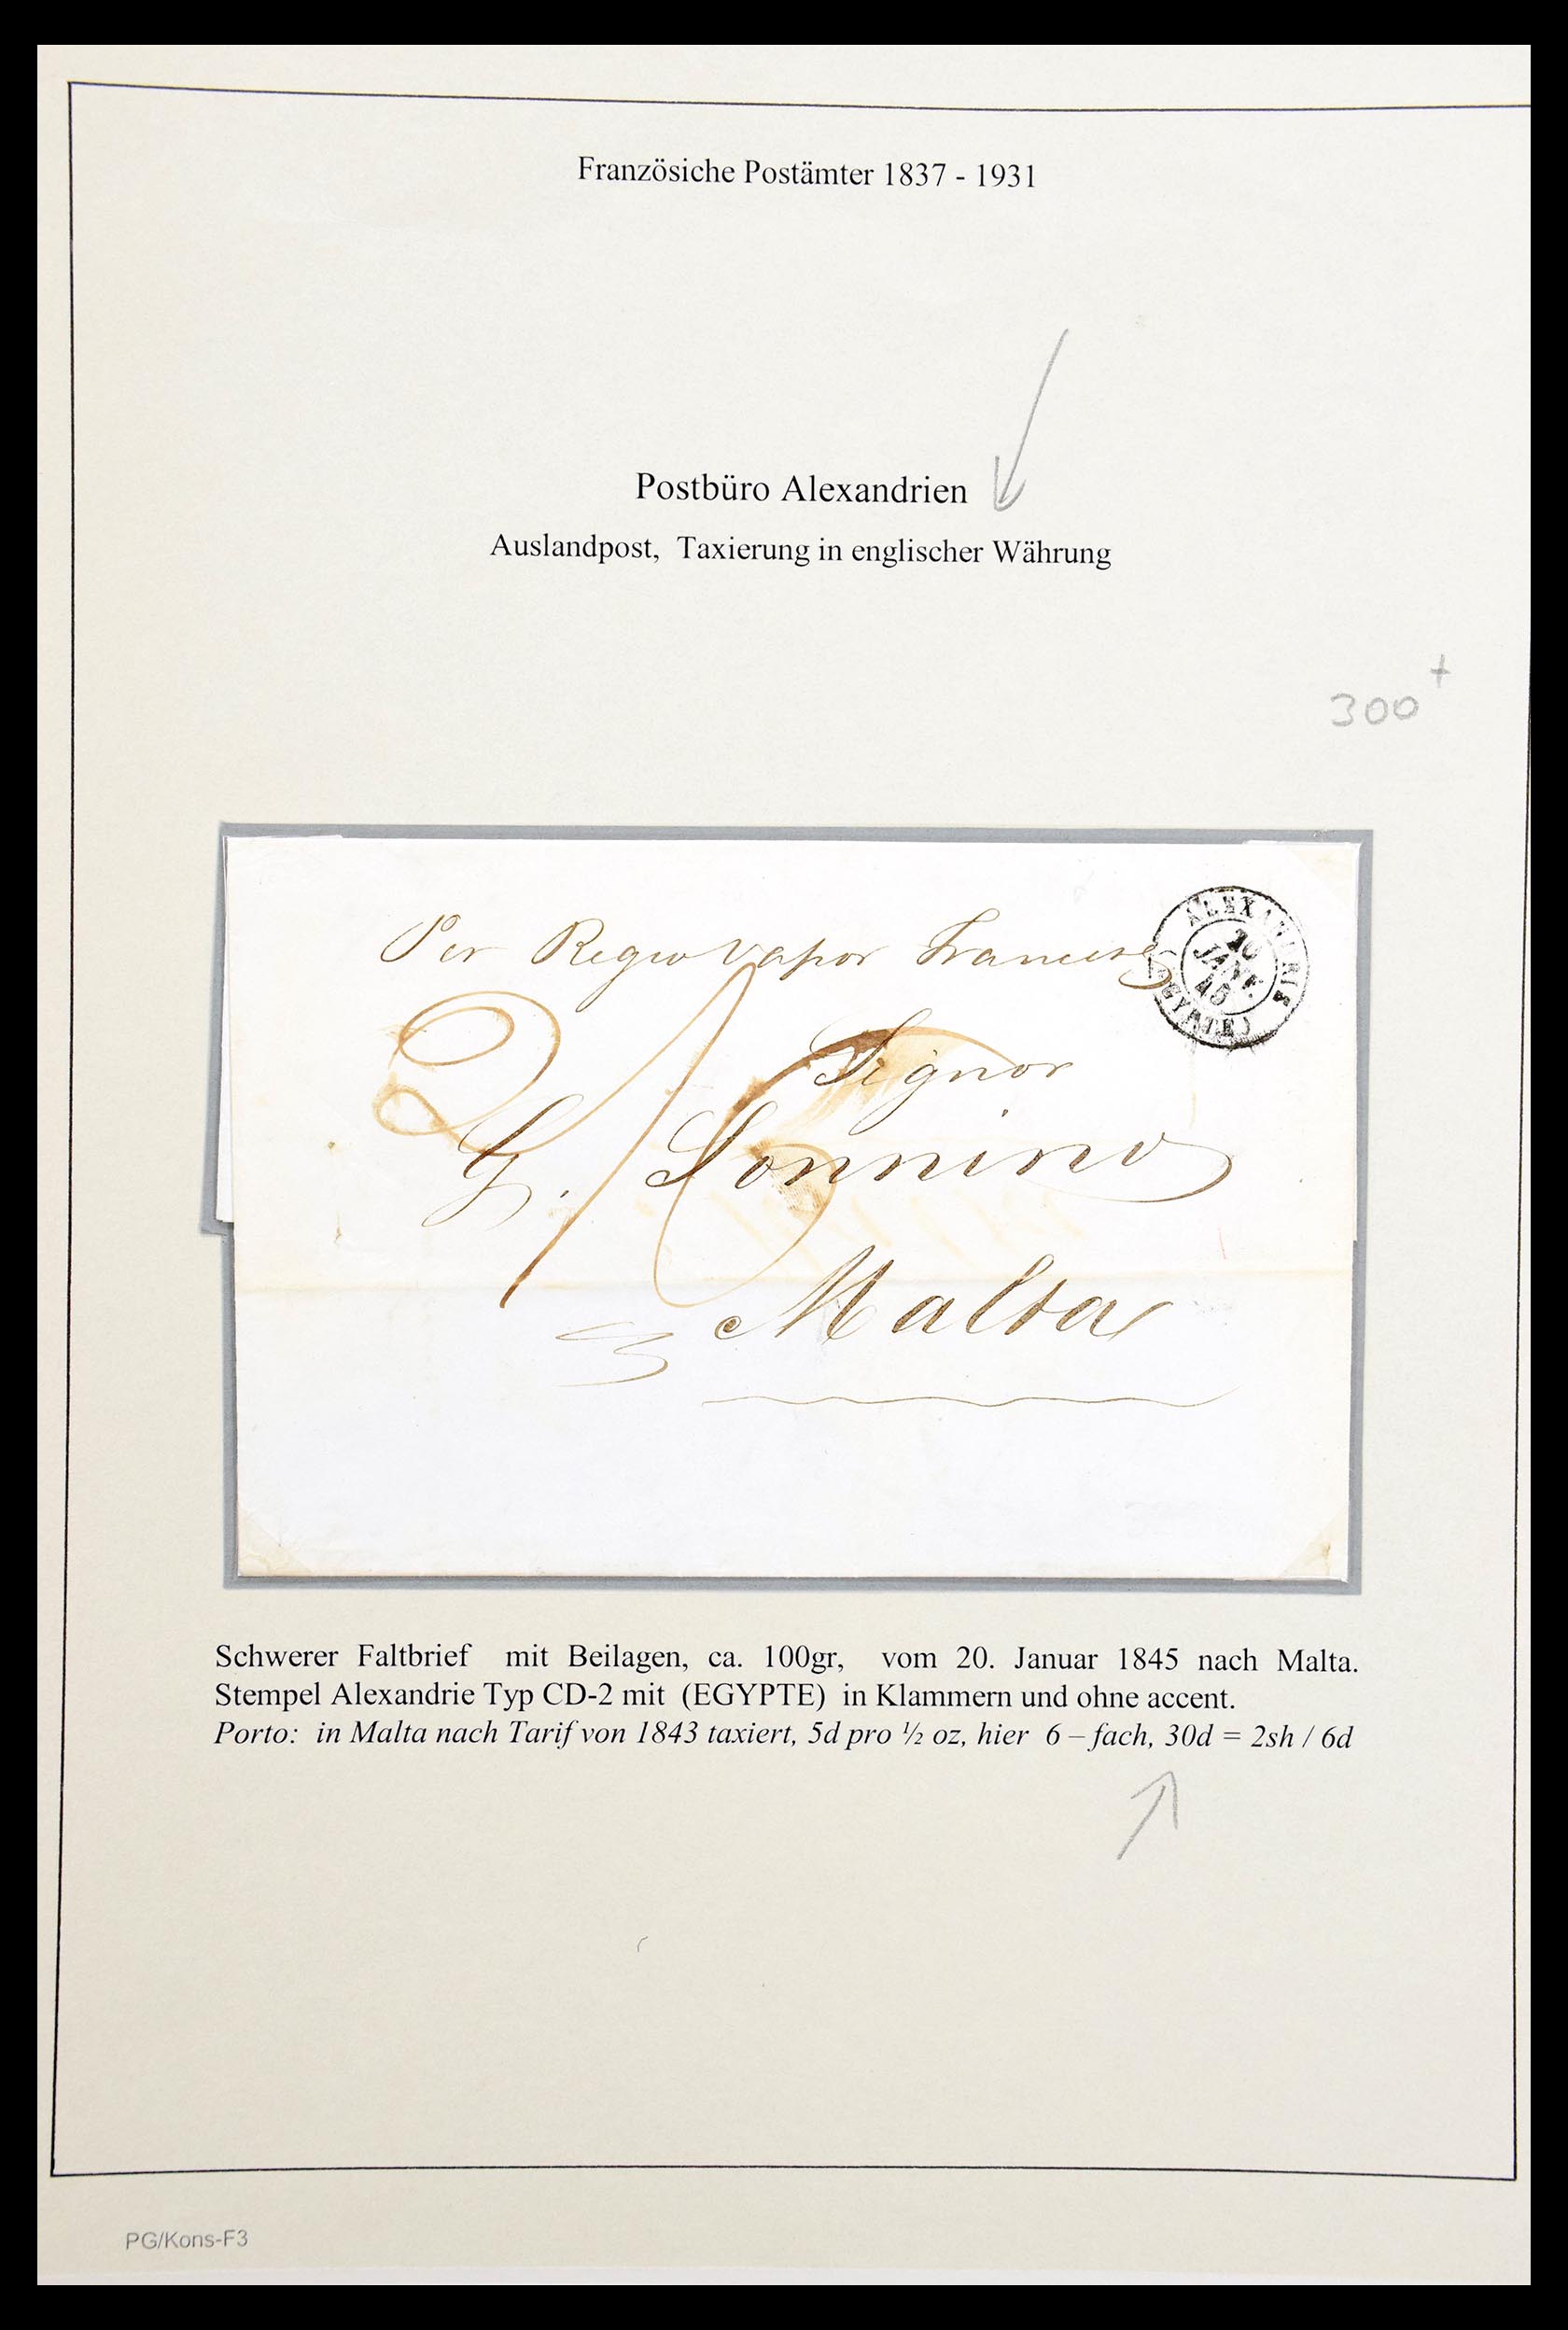 Französiche Postämter 1837 - 1931
Postbüro Alexandrien
Auslandpost, Taxierung in englischer Währung
300 +
Per Regio Vapor Francese
ALEXANDRIE
JANV.
45
(EGYPTE)
2/6
Signor
G. Sonnino
Malta
Schwerer Faltbrief mit Beilagen, ca. 100gr, vom 20. Januar 1845 nach Malta.
Stempel Alexandrie Typ CD-2 mit (EGYPTE) in Klammern und ohne accent.
Porto: in Malta nach Tarif von 1843 taxiert, 5d pro ½ oz, hier 6 – fach, 30d = 2sh / 6d
PG/Kons-F3